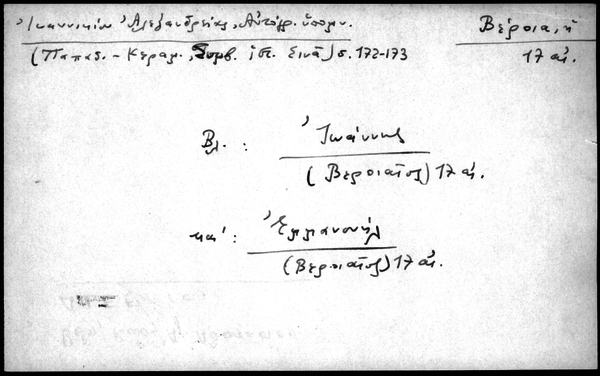 Ἰωαννικίου Ἀλεξανδρείας, Αὐτόγρ. ὑπόμν. Βέροια, ἡ
(Παπαδ.-Κεραμ., Συμβ. ἱστ. Σινᾶ) σ. 172-173 17 αἰ.
Βλ. : Ἰωάννης
(Βεροιαῖος) 17 αἰ.
και : Ἐμμανουήλ
(Βεροιαῖος) 17 αἰ.